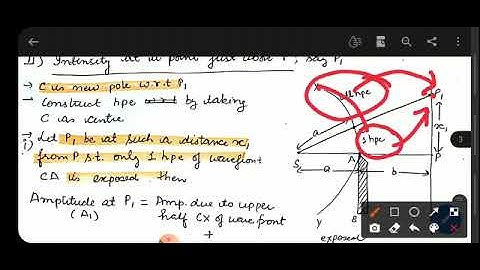 II) Intensity at a point just above P, say P₁
→ C is new pole w.r.t P₁
→ Construct hpe by taking
C as centre
i) Let P₁ be at such a distance x₁
from P s.t. only 1 hpe of wavefront
CA is exposed then
Amplitude at P₁ = Amp. due to upper
(A₁) half CX of wavefront
+
X
1/2 hpe
P₁
a
x₁
1 hpe
S
A
P
a
b
B
y
exposed
3